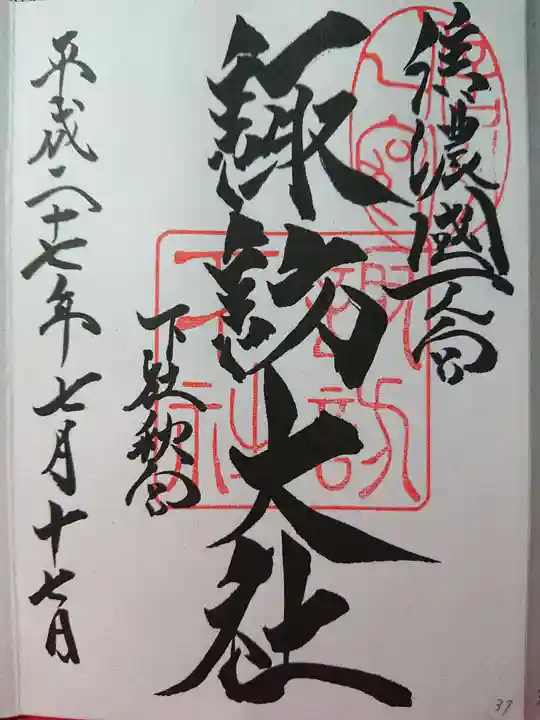 信濃國一之宮
諏訪大社
下社秋宮
平成二十七年七月十七日
諏訪
下社
37